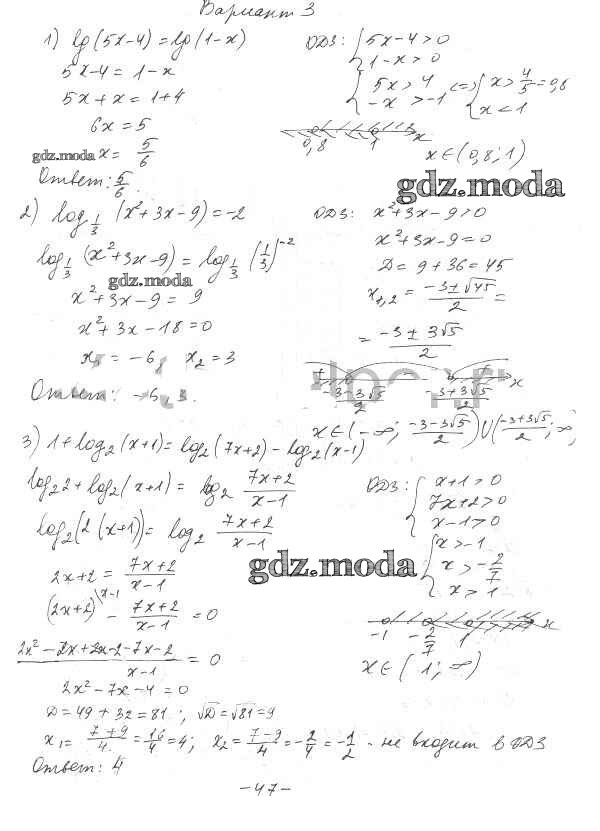 Вариант 3
1) lg(5x-4)=lg(1-x)
5x-4=1-x
5x+x=1+4
6x=5
gdz.moda x=5/6
Ответ: 5/6.
ОДЗ: {5x-4>0
1-x>0
{5x>4 <=> {x>4/5=0,8
-x>-1 x<1
0,8 1 x
x∈(0,8;1)
gdz.moda
2) log_{1/3}(x²+3x-9)=-2
log_{1/3}(x²+3x-9)=log_{1/3}(1/3)^{-2}
gdz.moda
x²+3x-9=9
x²+3x-18=0
x₁=-6, x₂=3
Ответ: -6, 3.
ОДЗ: x²+3x-9>0
x²+3x-9=0
D=9+36=45
x_{1,2}=(-3±√45)/2=
=(-3±3√5)/2
+ - + x
(-3-3√5)/2 (-3+3√5)/2
x∈(-∞; (-3-3√5)/2)∪((-3+3√5)/2; ∞)
3) 1+log₂(x+1)=log₂(7x+2)-log₂(x-1)
log₂2+log₂(x+1)=log₂ (7x+2)/(x-1)
log₂(2(x+1))=log₂ (7x+2)/(x-1)
2x+2=(7x+2)/(x-1)
(2x+2)\x-1 - (7x+2)/(x-1)=0
(2x²-2x+2x-2-7x-2)/(x-1)=0
2x²-7x-4=0
D=49+32=81; √D=√81=9
x₁=(7+9)/4=16/4=4; x₂=(7-9)/4=-2/4=-1/2 - не входит в ОДЗ
Ответ: 4
ОДЗ: {x+1>0
7x+2>0
x-1>0
{x>-1
x>-2/7
x>1
gdz.moda
-1 -2/7 1 x
x∈(1;∞)
-47-